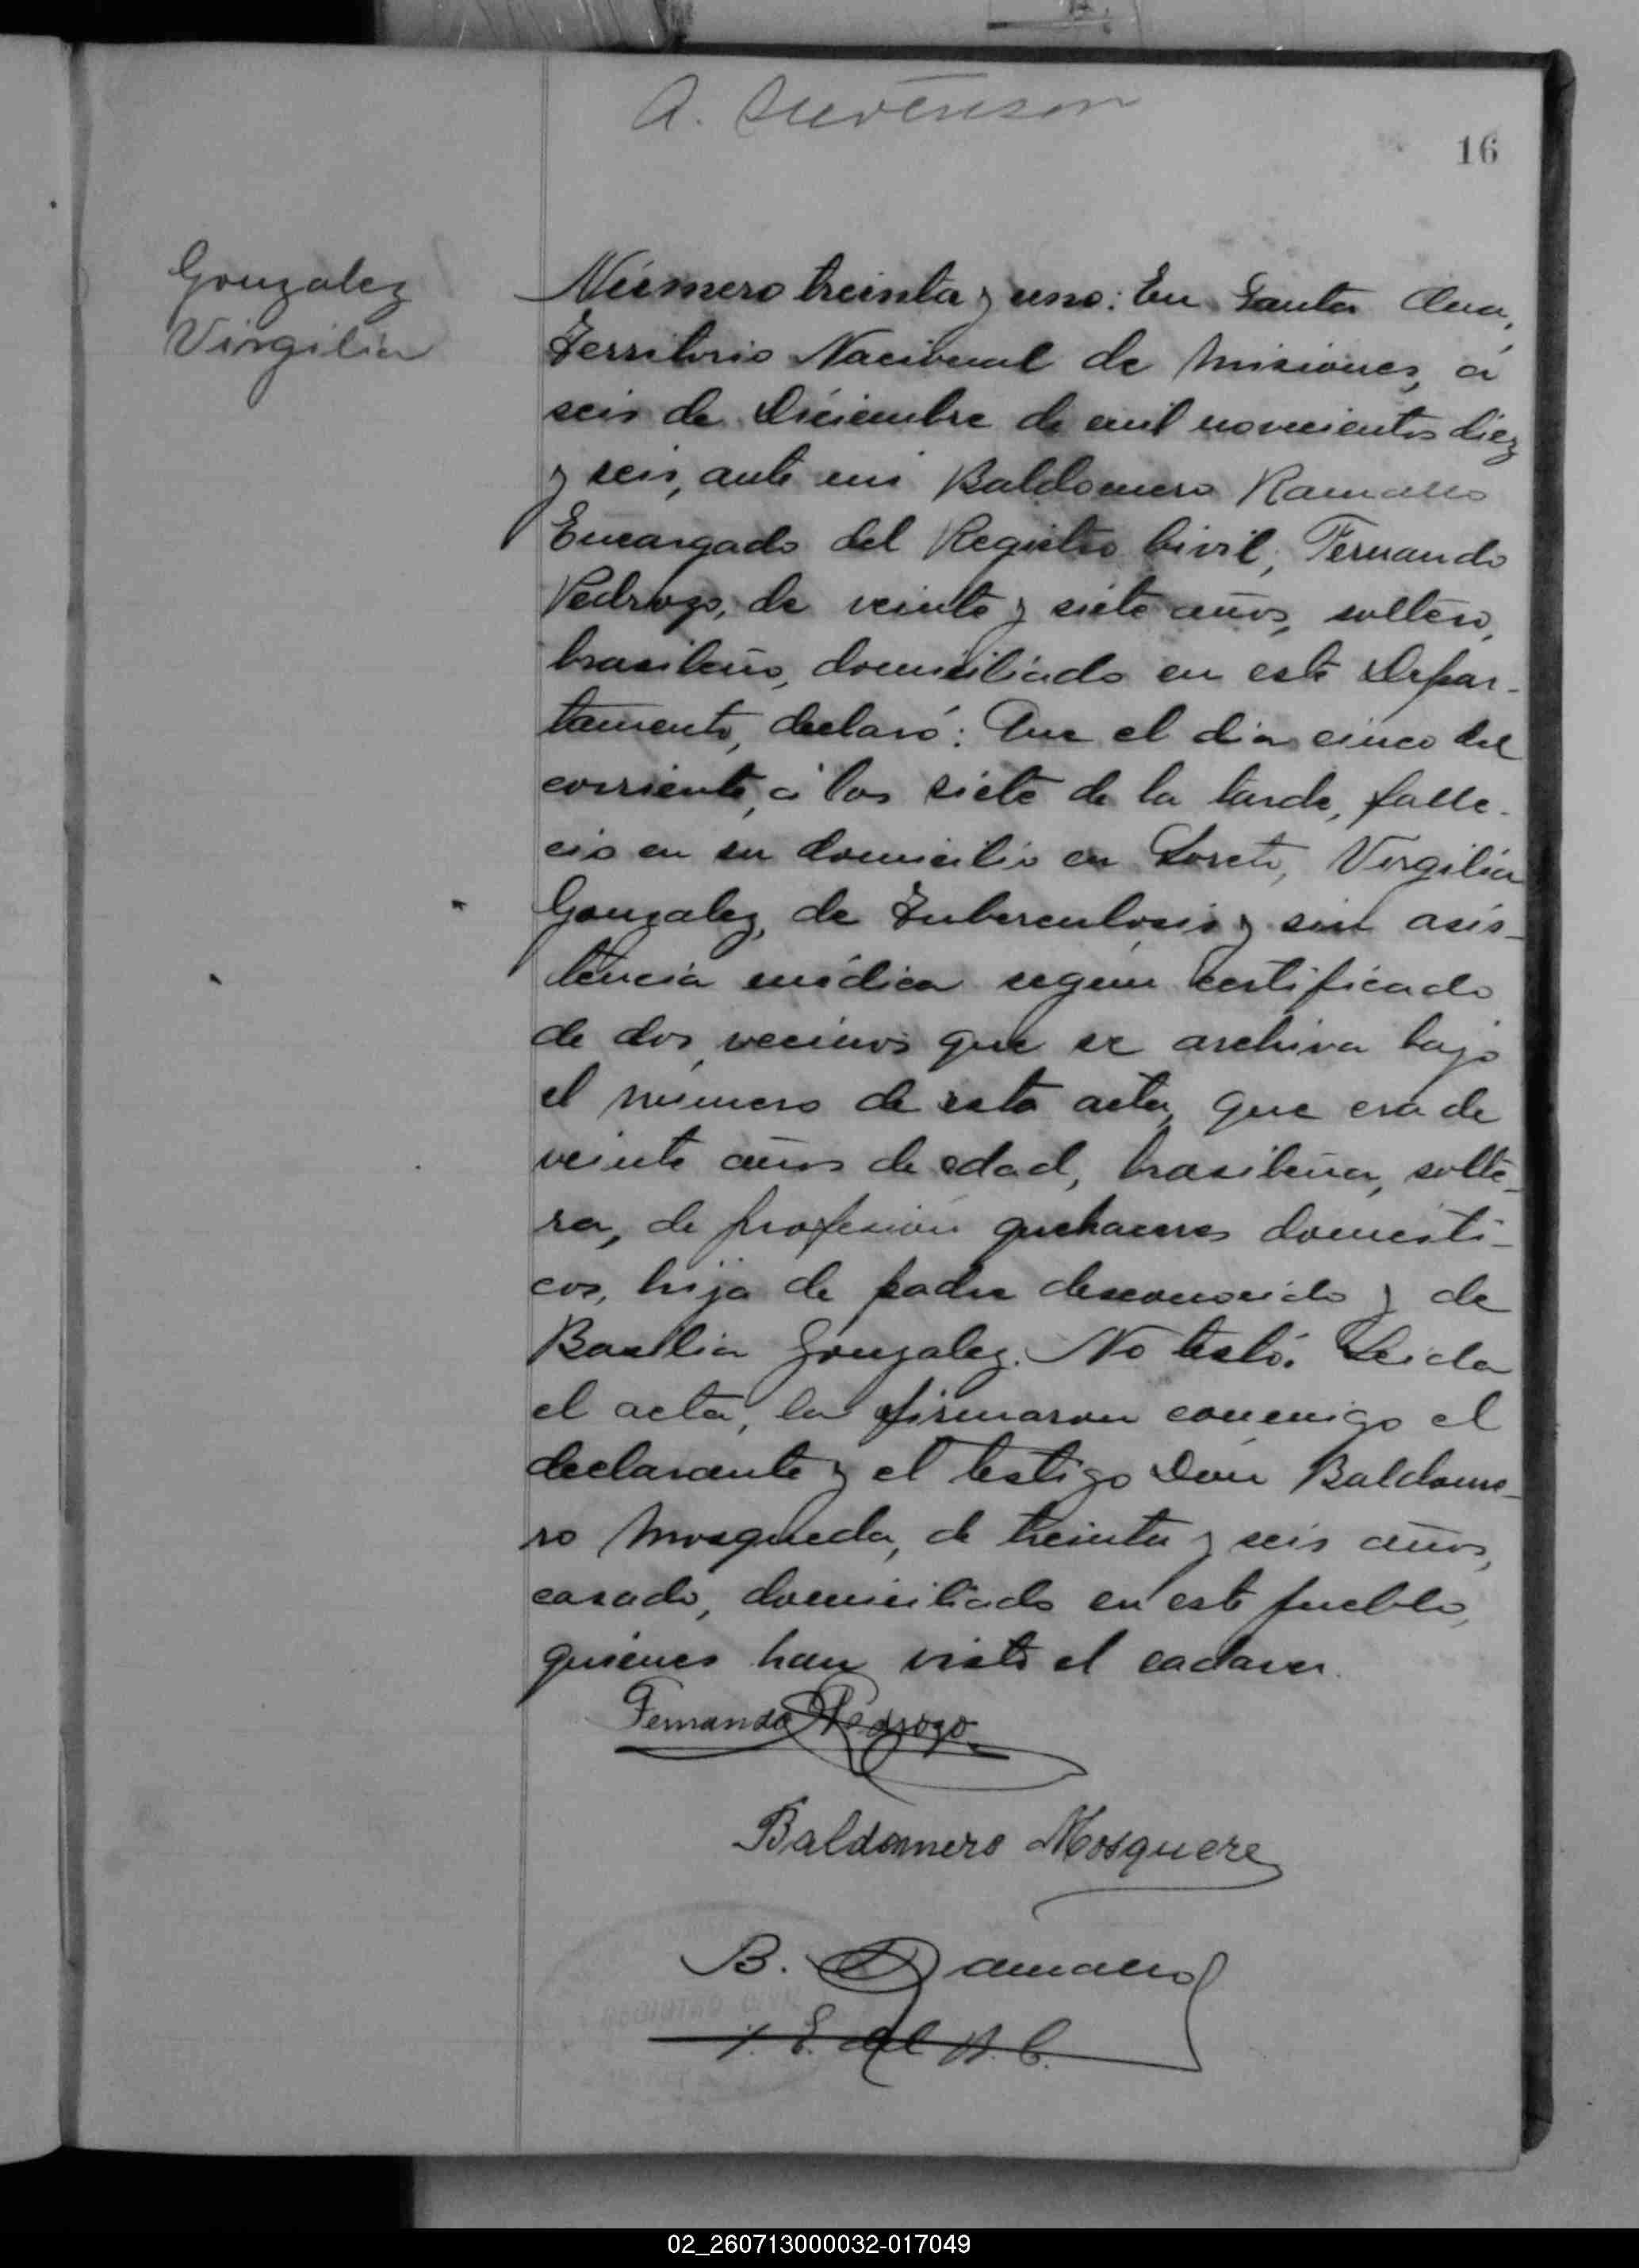 A. Stevenson
16
Gonzalez
Virgilia
Número treinta y uno: En Santa Ana,
Territorio Nacional de Misiones, á
seis de Diciembre de mil novecientos diez
y seis, ante mi Baldomero Ramallo
Encargado del Registro Civil, Fernando
Pedrozo, de veinte y siete años, soltero,
brasileño, domiciliado en este Depar-
tamento, declaró: Que el dia cinco del
corriente, á las siete de la tarde, falle-
ció en su domicilio en Loreto, Virgilia
Gonzalez, de Tuberculosis y sin asis-
tencia médica segun certificado
de dos vecinos que se archiva bajo
el número de esta acta, que era de
veinte años de edad, brasileña, solte-
ra, de profesion quehaceres domesti-
cos, hija de padre desconocido y de
Basilia Gonzalez. No testó. Leida
el acta, la firmaron conmigo el
declarante y el testigo Don Baldome-
ro Mosqueda, de treinta y seis años,
casado, domiciliado en este pueblo,
quienes han visto el cadaver.
Fernando Pedrozo
Baldomero Mosquere
B. Ramallo
E. del R. C.
REGISTRO CIVIL
02_260713000032-017049